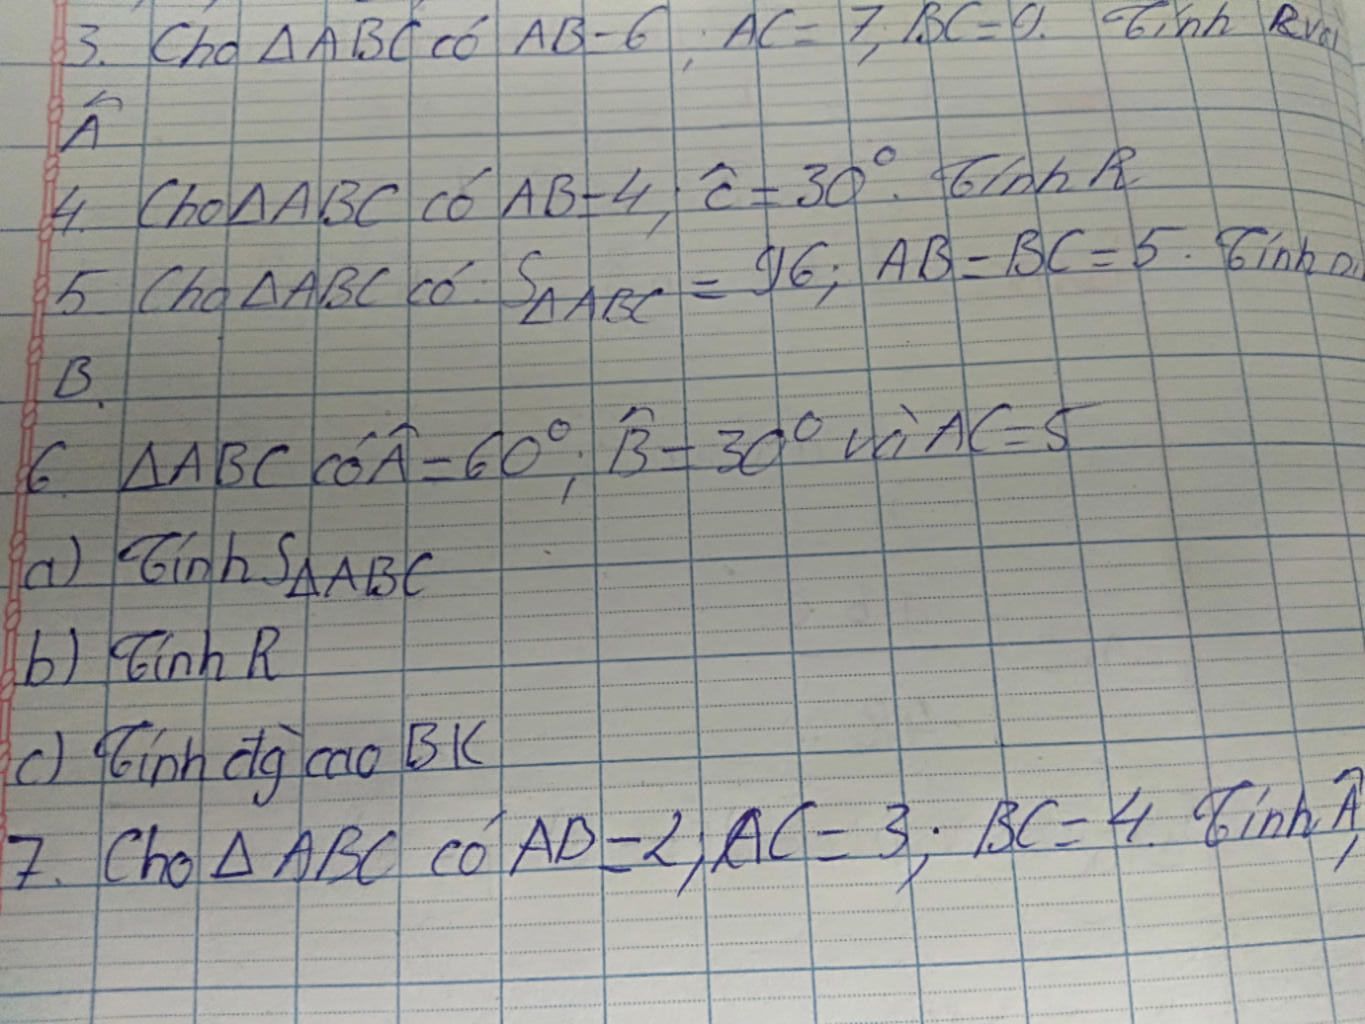 3. Cho ΔABC có AB = 6; AC = 7; BC = 9. Tính R và
Â
4. Cho ΔABC có AB = 4; Ĉ = 30°. Tính R
5 Cho ΔABC có S ΔABC = 96; AB = BC = 5. Tính
B.
6. ΔABC có Â = 60°; B̂ = 30° và AC = 5
a) Tính SΔABC
b) Tính R
c) Tính đg cao BK
7. Cho Δ ABC có AB = 2; AC = 3; BC = 4. Tính Â,